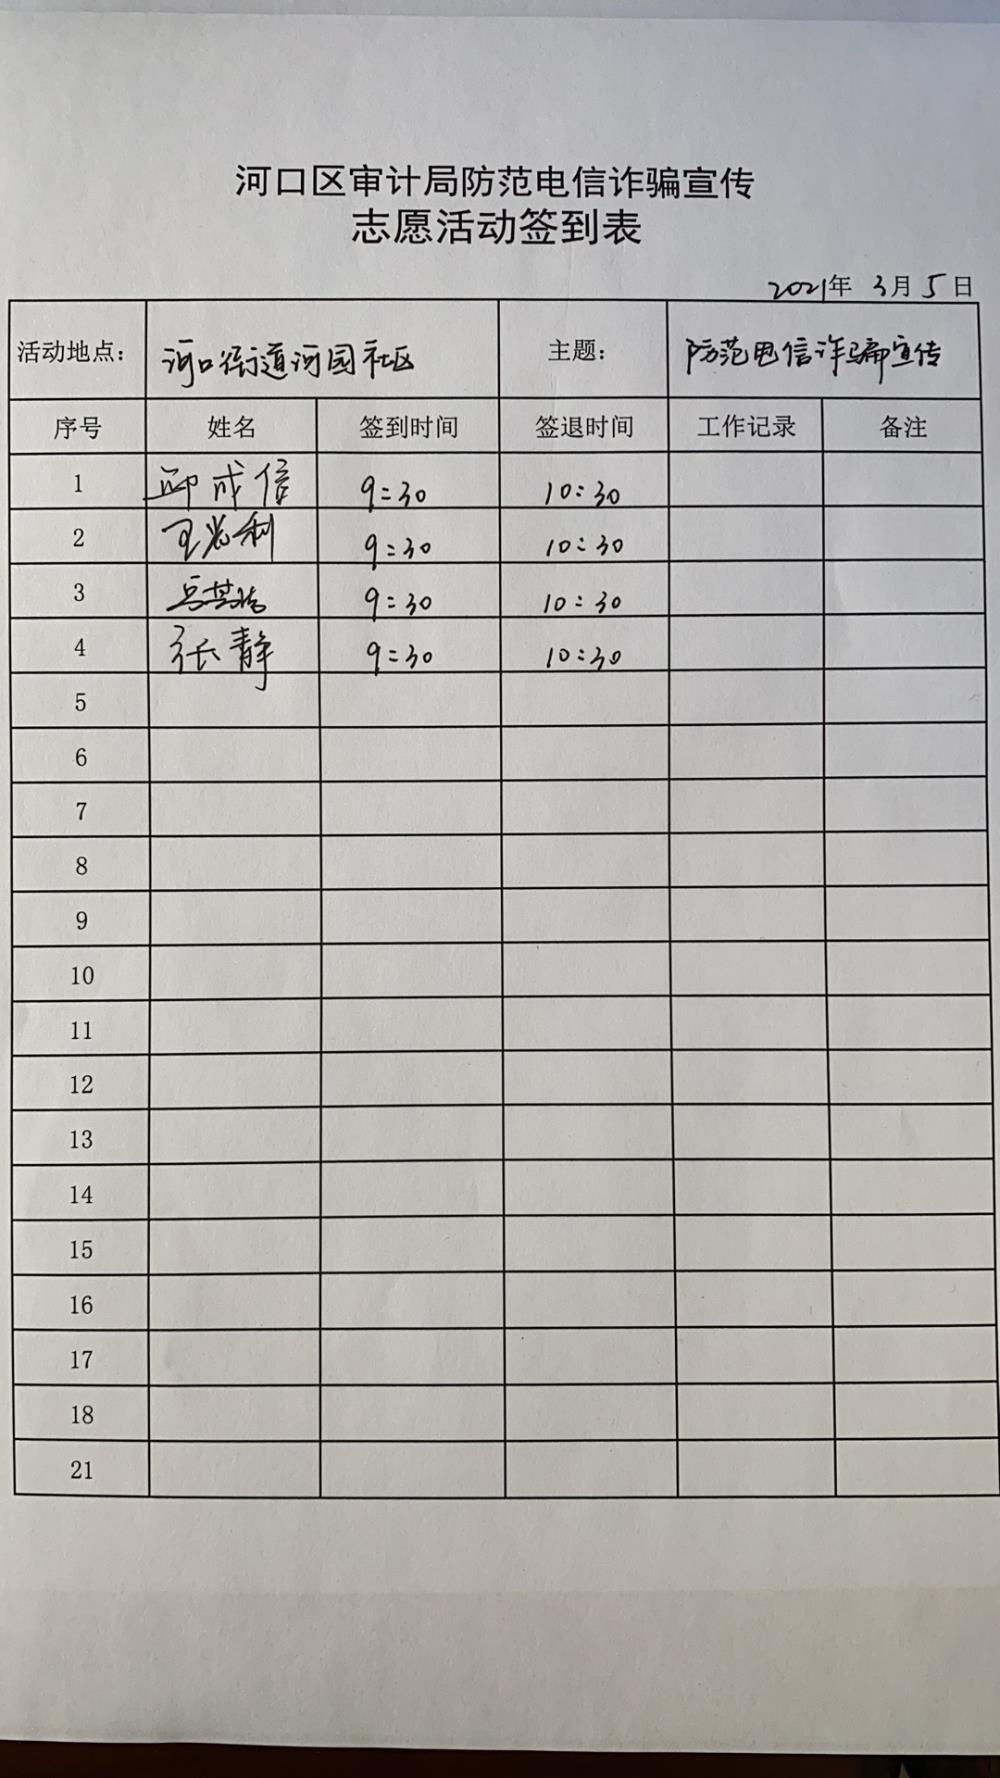 河口区审计局防范电信诈骗宣传
志愿活动签到表
2021年 3月5日
活动地点： 河口街道河园社区 主题： 防范电信诈骗宣传
序号 姓名 签到时间 签退时间 工作记录 备注
1 邱成信 9:30 10:30
2 王 利 9:30 10:30
3 9:30 10:30
4 张静 9:30 10:30
5
6
7
8
9
10
11
12
13
14
15
16
17
18
21